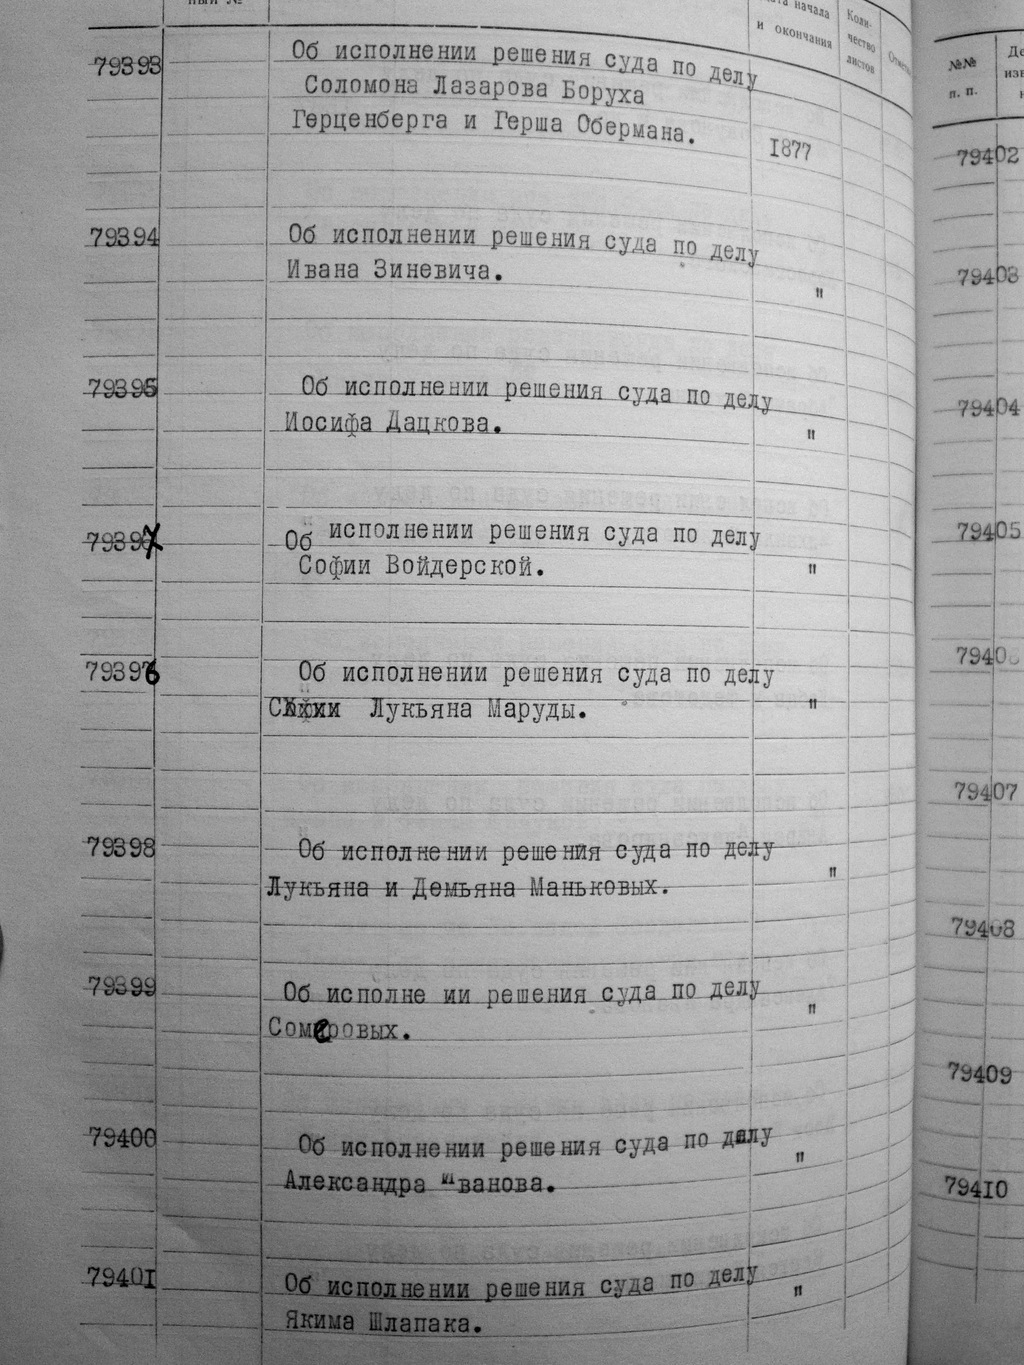 ный №
дата начала
и окончания
Коли-
чество
листов
79393
Об исполнении решения суда по делу
Соломона Лазарова Боруха
Герценберга и Герша Обермана.
1877
79394
Об исполнении решения суда по делу
Ивана Зиневича.
"
79395
Об исполнении решения суда по делу
Иосифа Дацкова.
"
79397
Об исполнении решения суда по делу
Софии Войдерской.
"
79396
Об исполнении решения суда по делу
Лукьяна Маруды.
"
79398
Об исполнении решения суда по делу
Лукьяна и Демьяна Маньковых.
"
79399
Об исполне ии решения суда по делу
Сомеровых.
"
79400
Об исполнении решения суда по делу
Александра Иванова.
"
79401
Об исполнении решения суда по делу
Якима Шлапака.
"
№№
п. п.
79402
79403
79404
79405
79406
79407
79408
79409
79410